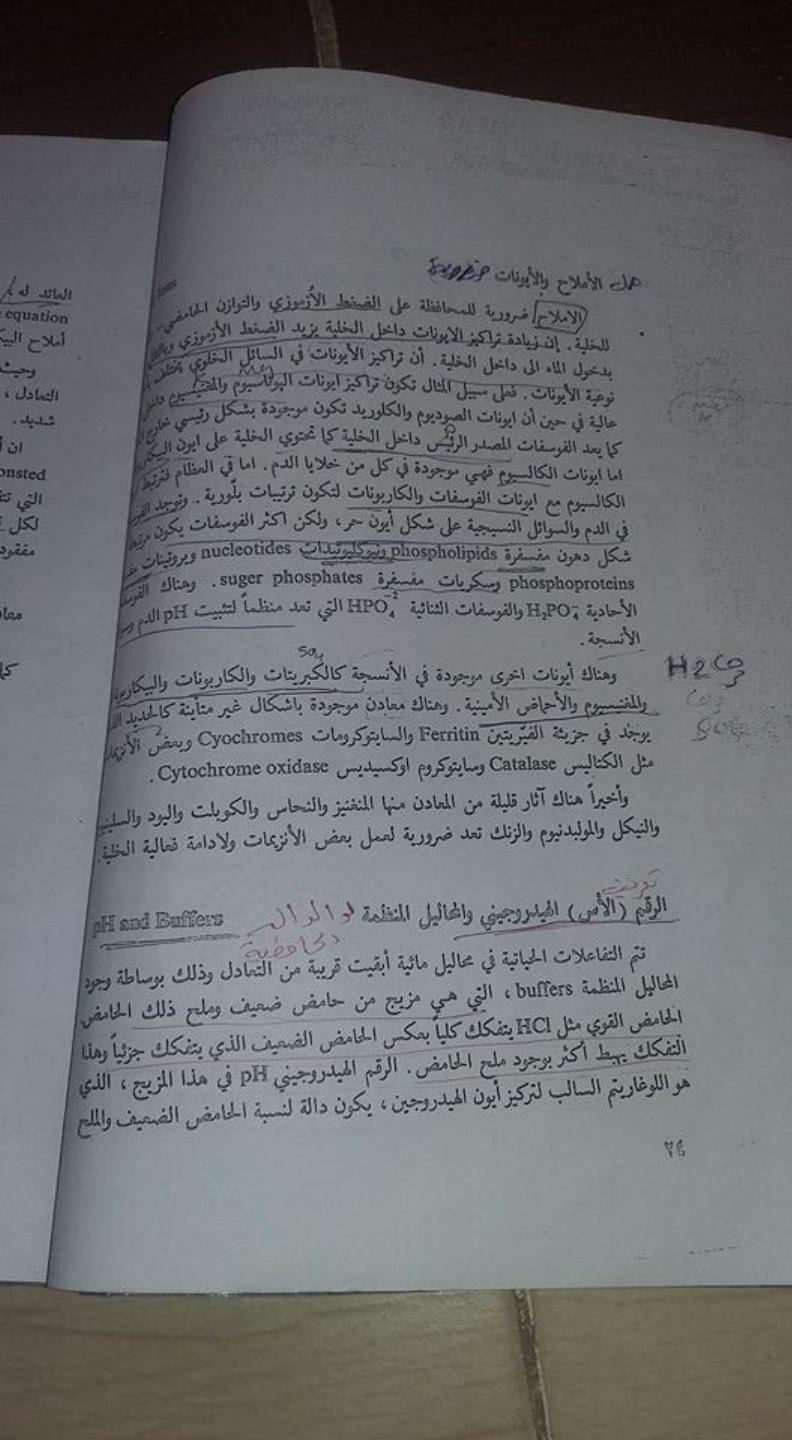 هل الأملاح والأيونات ضرورية
الاملاح ضرورية للمحافظة على الضغط الأزموزي والتوازن الحامضي
للخلية . إن زيادة تراكيز الايونات داخل الخلية يزيد الضغط الأزموزي وبالتالي
بدخول الماء الى داخل الخلية . أن تراكيز الأيونات في السائل الخلوي يختلف
نوعية الأيونات . فعلى سبيل المثال تكون تراكيز ايونات البوتاسيوم والمغنيسيوم داخل
عالية في حين أن ايونات الصوديوم والكلوريد تكون موجودة بشكل رئيسي خارج
كما يعد الفوسفات المصدر الرئيس داخل الخلية كما تحتوي الخلية على ايون
اما ايونات الكالسيوم فهي موجودة في كل من خلايا الدم . اما في العظام فترتبط
الكالسيوم مع ايونات الفوسفات والكاربونات لتكون ترتيبات بلّورية .. وتوجد
في الدم والسوائل النسيجية على شكل أيون حر، ولكن اكثر الفوسفات يكون
شكل دهون مفسفرة phospholipids ونيوكليوتيدات nucleotides وبروتينات
phosphoproteins وسكريات مفسفرة suger phosphates . وهناك
الأحادية H₂PO₄⁻ والفوسفات الثنائية HPO₄⁻² التي تعد منظماً لتثبيت pH الدم
الأنسجة .
So4
وهناك أيونات اخرى موجودة في الأنسجة كالكبريتات والكاربونات والبيكاربونات
H2Co3
والمغنيسيوم والأحماض الأمينية . وهناك معادن موجودة باشكال غير متأينة كالحديد
يوجد في جزيئة الفيّريتين Ferritin والسايتوكرومات Cyochromes وبعض الأنزيمات
مثل الكتاليس Catalase وسايتوكروم اوكسيديس Cytochrome oxidase .
وأخيراً هناك آثار قليلة من المعادن منها المنغنيز والنحاس والكوبلت واليود والسلينيوم
والنيكل والموليبدنيوم والزنك تعد ضرورية لعمل بعض الأنزيمات ولادامة فعالية الخلية.
الرقم (الأس) الهيدروجيني والمحاليل المنظمة pH and Buffers
تتم التفاعلات الحياتية في محاليل مائية أبقيت قريبة من التعادل وذلك بوساطة وجود
المحاليل المنظمة buffers ، التي هي مزيج من حامض ضعيف وملح ذلك الحامض
الحامض القوي مثل HCl يتفكك كلياً بعكس الحامض الضعيف الذي يتفكك جزئياً وهذا
التفكك يهبط أكثر بوجود ملح الحامض . الرقم الهيدروجيني pH في هذا المزيج ، الذي
هو اللوغاريتم السالب لتركيز أيون الهيدروجين، يكون دالة لنسبة الحامض الضعيف والملح
٢٤
العائد له
equation
أملاح
وحيث
التعادل ،
شديد .
ان
onsted
التي
لكل
مفقود